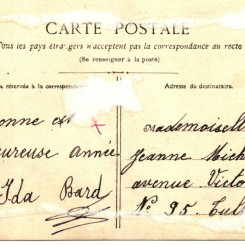 CARTE POSTALE
Tous les pays étrangers n'acceptent pas la correspondance au recto
(Se renseigner à la poste)
réservée à la correspondance
Adresse du destinataire.
onne
ureuse année
Ida Bard
Mademoiselle
Jeanne Mich
avenue Victo
N° 95.